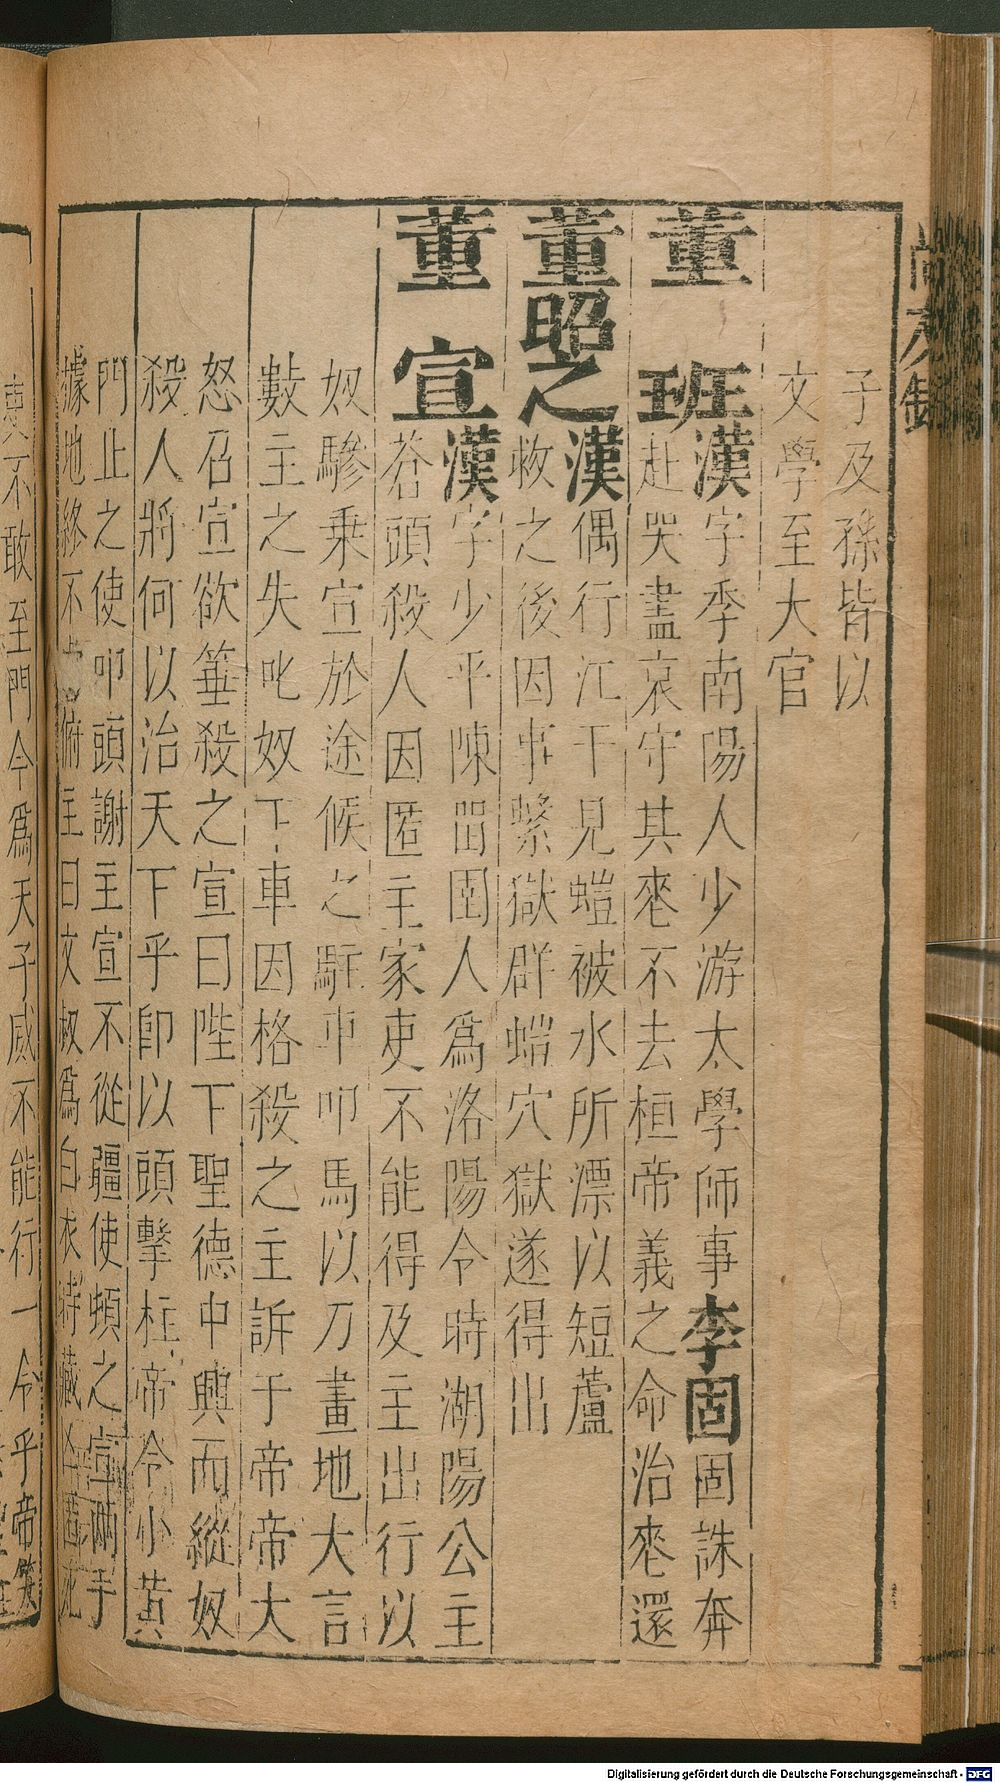 尚友錄
子及孫皆以
文學至大官
董班漢字季南陽人少游太學師事李固固誅奔
赴哭盡哀守其喪不去桓帝義之命治喪還
董昭之漢偶行江干見螘被水所漂以短蘆
救之後因事繫獄群螘穴獄遂得出
董宣漢字少平陳留圉人為洛陽令時湖陽公主
蒼頭殺人因匿主家吏不能得及主出行以
奴驂乘宣於途候之駐車叩馬以刀畫地大言
數主之失叱奴下車因格殺之主訴于帝帝大
怒召宣欲箠殺之宣曰陛下聖德中興而縱奴
殺人將何以治天下乎卽以頭擊柱帝令小黃
門止之使叩頭謝主宣不從彊使頓之宣兩手
據地終不俯主曰文叔為白衣時藏匿死
吏不敢至門今為天子威不能行一令乎帝笑
Digitalisierung gefördert durch die Deutsche Forschungsgemeinschaft - DFG